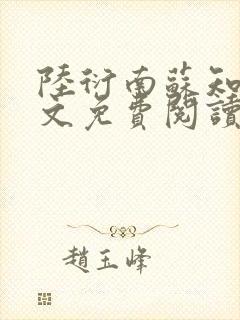 陸衍南蘇知
文免費閱讀
趙玉峰